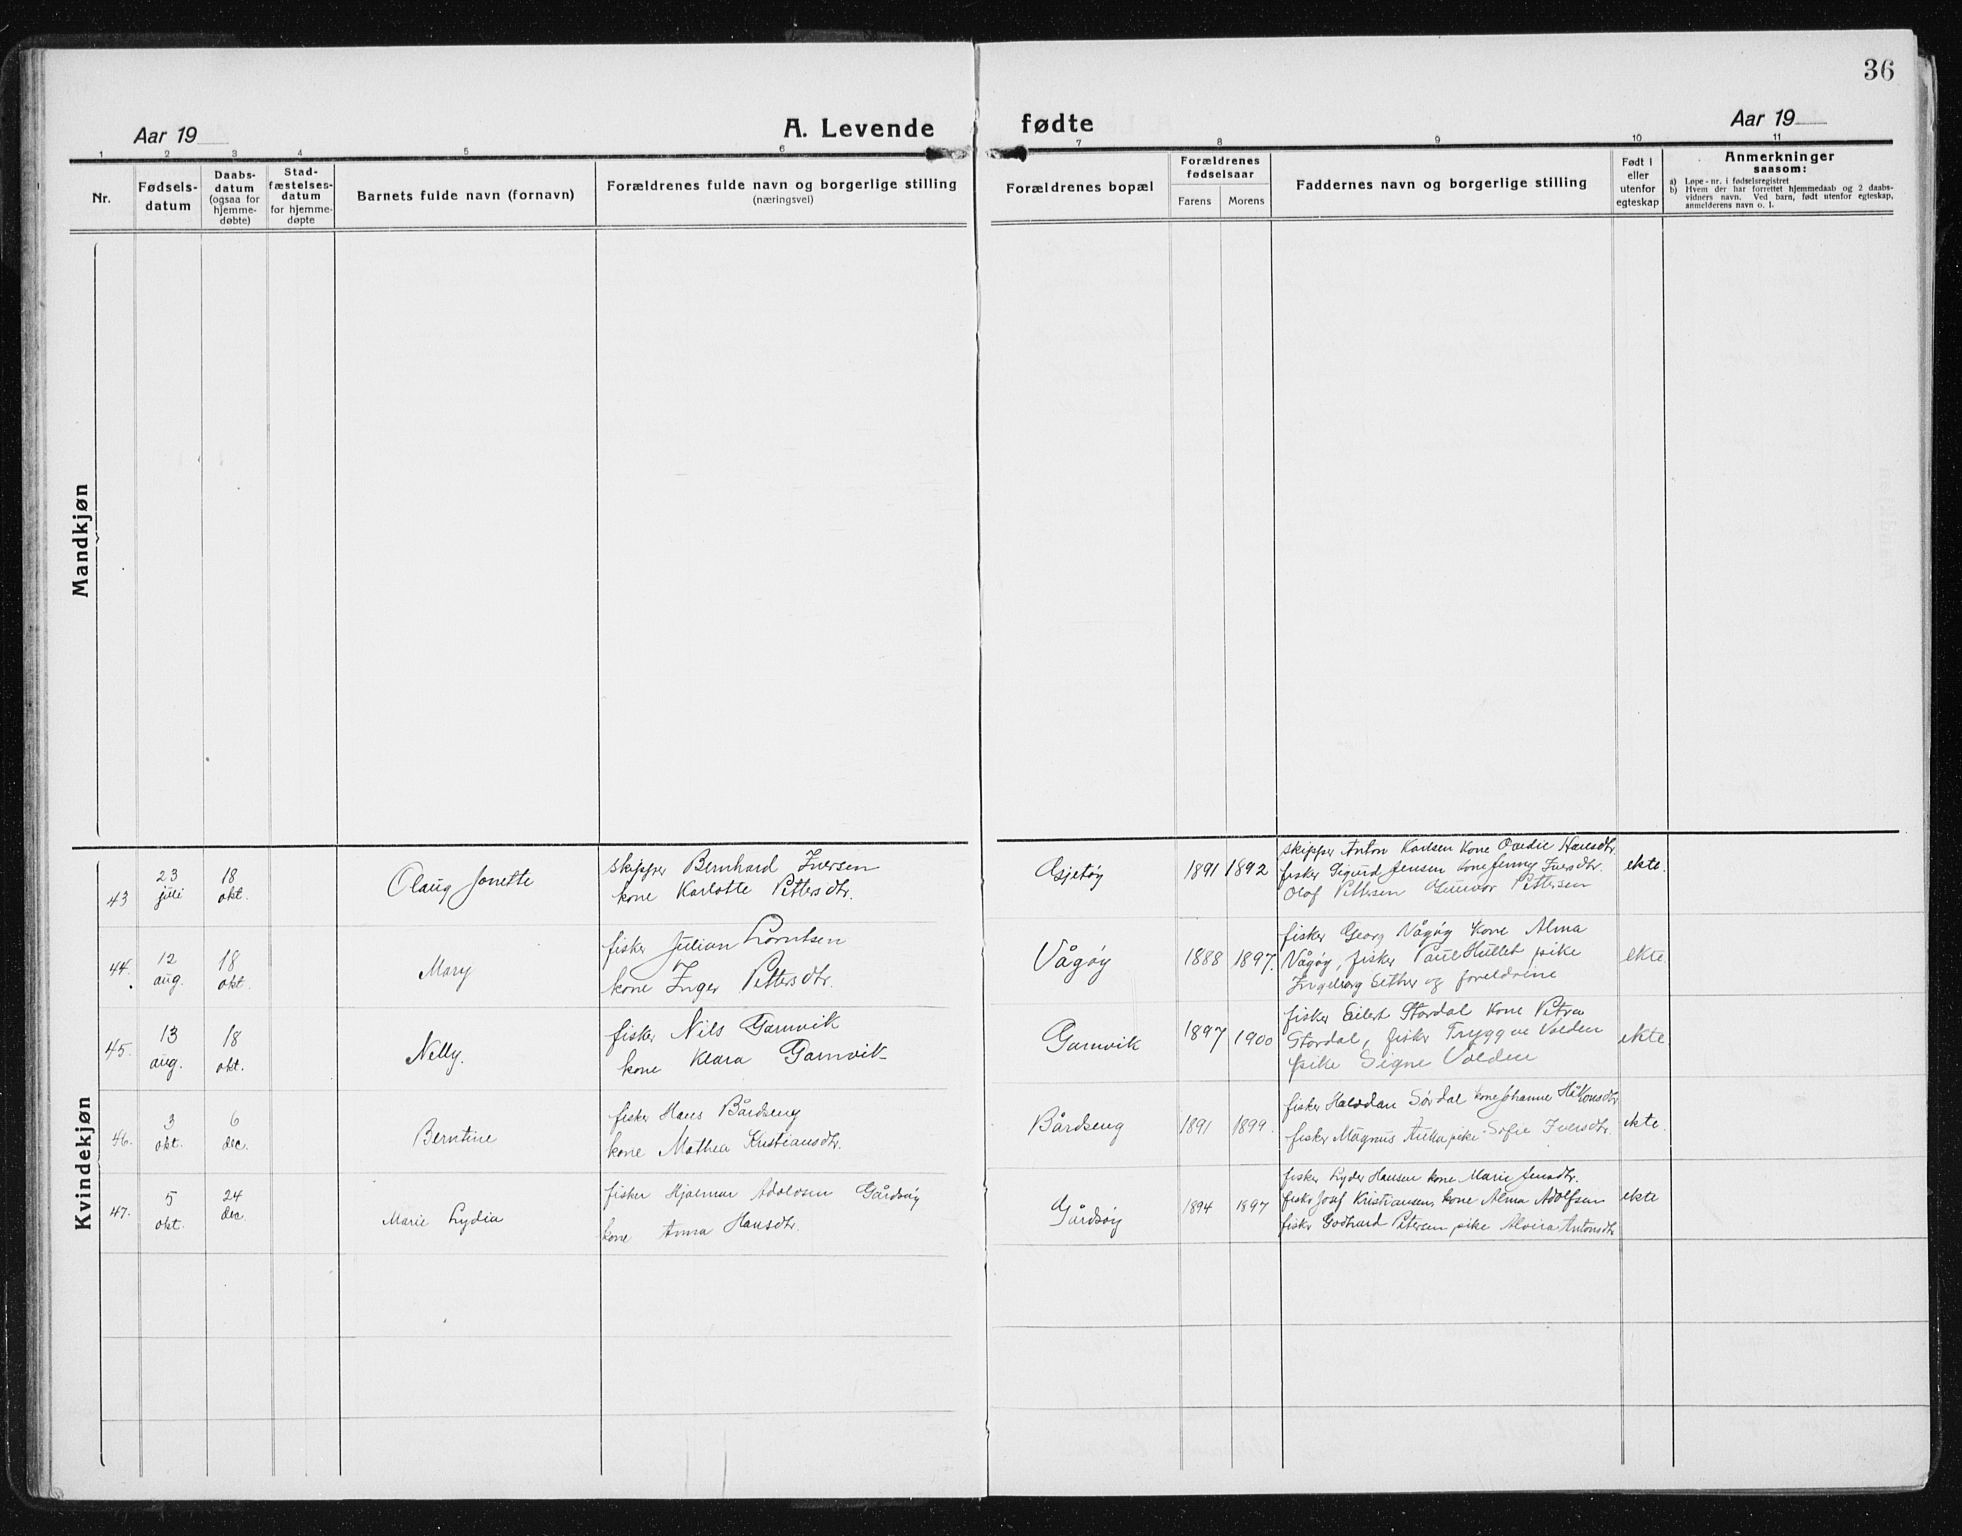 36
Aar 19
A. Levende
fødte
Aar 19
1 2 3 4 5 6 7 8 9 10 11
Nr.
Fødsels-
datum
Daabs-
datum
(ogsaa for
hjemme-
døbte)
Stad-
fæstelses-
datum
for hjemme-
døpte
Barnets fulde navn (fornavn)
Forældrenes fulde navn og borgerlige stilling
(næringsvei)
Forældrenes bopæl
Forældrenes
fødselsaar
Farens Morens
Faddernes navn og borgerlige stilling
Født i
eller
utenfor
egteskap
Anmerkninger
saasom:
a) Løpe-nr. i fødselsregistret
b) Hvem der har forrettet hjemmedaab og 2 daabs-
vidners navn. Ved barn, født utenfor egteskap,
anmelderens navn o. l.
Mandkjøn
Kvindekjøn
43
23
juli
18
okt.
Olaug Jonette
skipper Bernhard Iversen
kone Karlotte Pettersdtr.
Gjetøy
1891 1892
skipper Anton Karlsen kone Hansdtr.
fisker Sigurd Jensen kone Jenny Iversdtr.
Olaf Pettersen Gunvor Pettersen
ekte.
44.
12
aug.
18
okt.
Mary
fisker Julian Lorntsen
kone Inger Pettersdtr.
Vågøy
1888 1897.
fisker Georg Vågøy kone Alma
Vågøy, fisker Paul Hullet pike
Ingeborg Sether og foreldrene
ekte
45.
13
aug.
18
okt.
Nelly.
fisker Nils Garnvik
kone Klara Garnvik
Garnvik
1897 1900
fisker Eilert Stordal kone Petra
Stordal, fisker Tryggve Volden
pike Signe Volden
ekte
46.
3
okt.
6
dec.
Berntine
fisker Hans Bårdseng
kone Mathea Kristiansdtr.
Bårdseng
1891 1899.
fisker Halvdan Sørdal kone Johanne Håkonsdtr
fisker Magnus pike Sofie Iversdtr.
ekte.
47.
5
okt.
24
dec.
Marie Lydia
fisker Hjalmar Adolvsen Gårdsøy
kone Anna Hansdtr.
Gårdsøy
1894 1897
fisker Lyder Hansen kone Marie Jensdtr.
fisker Josef Kristiansen, kone Alma Adolfsen
fisker Godhard Petersen pike Alvira Antonsdtr
ekte